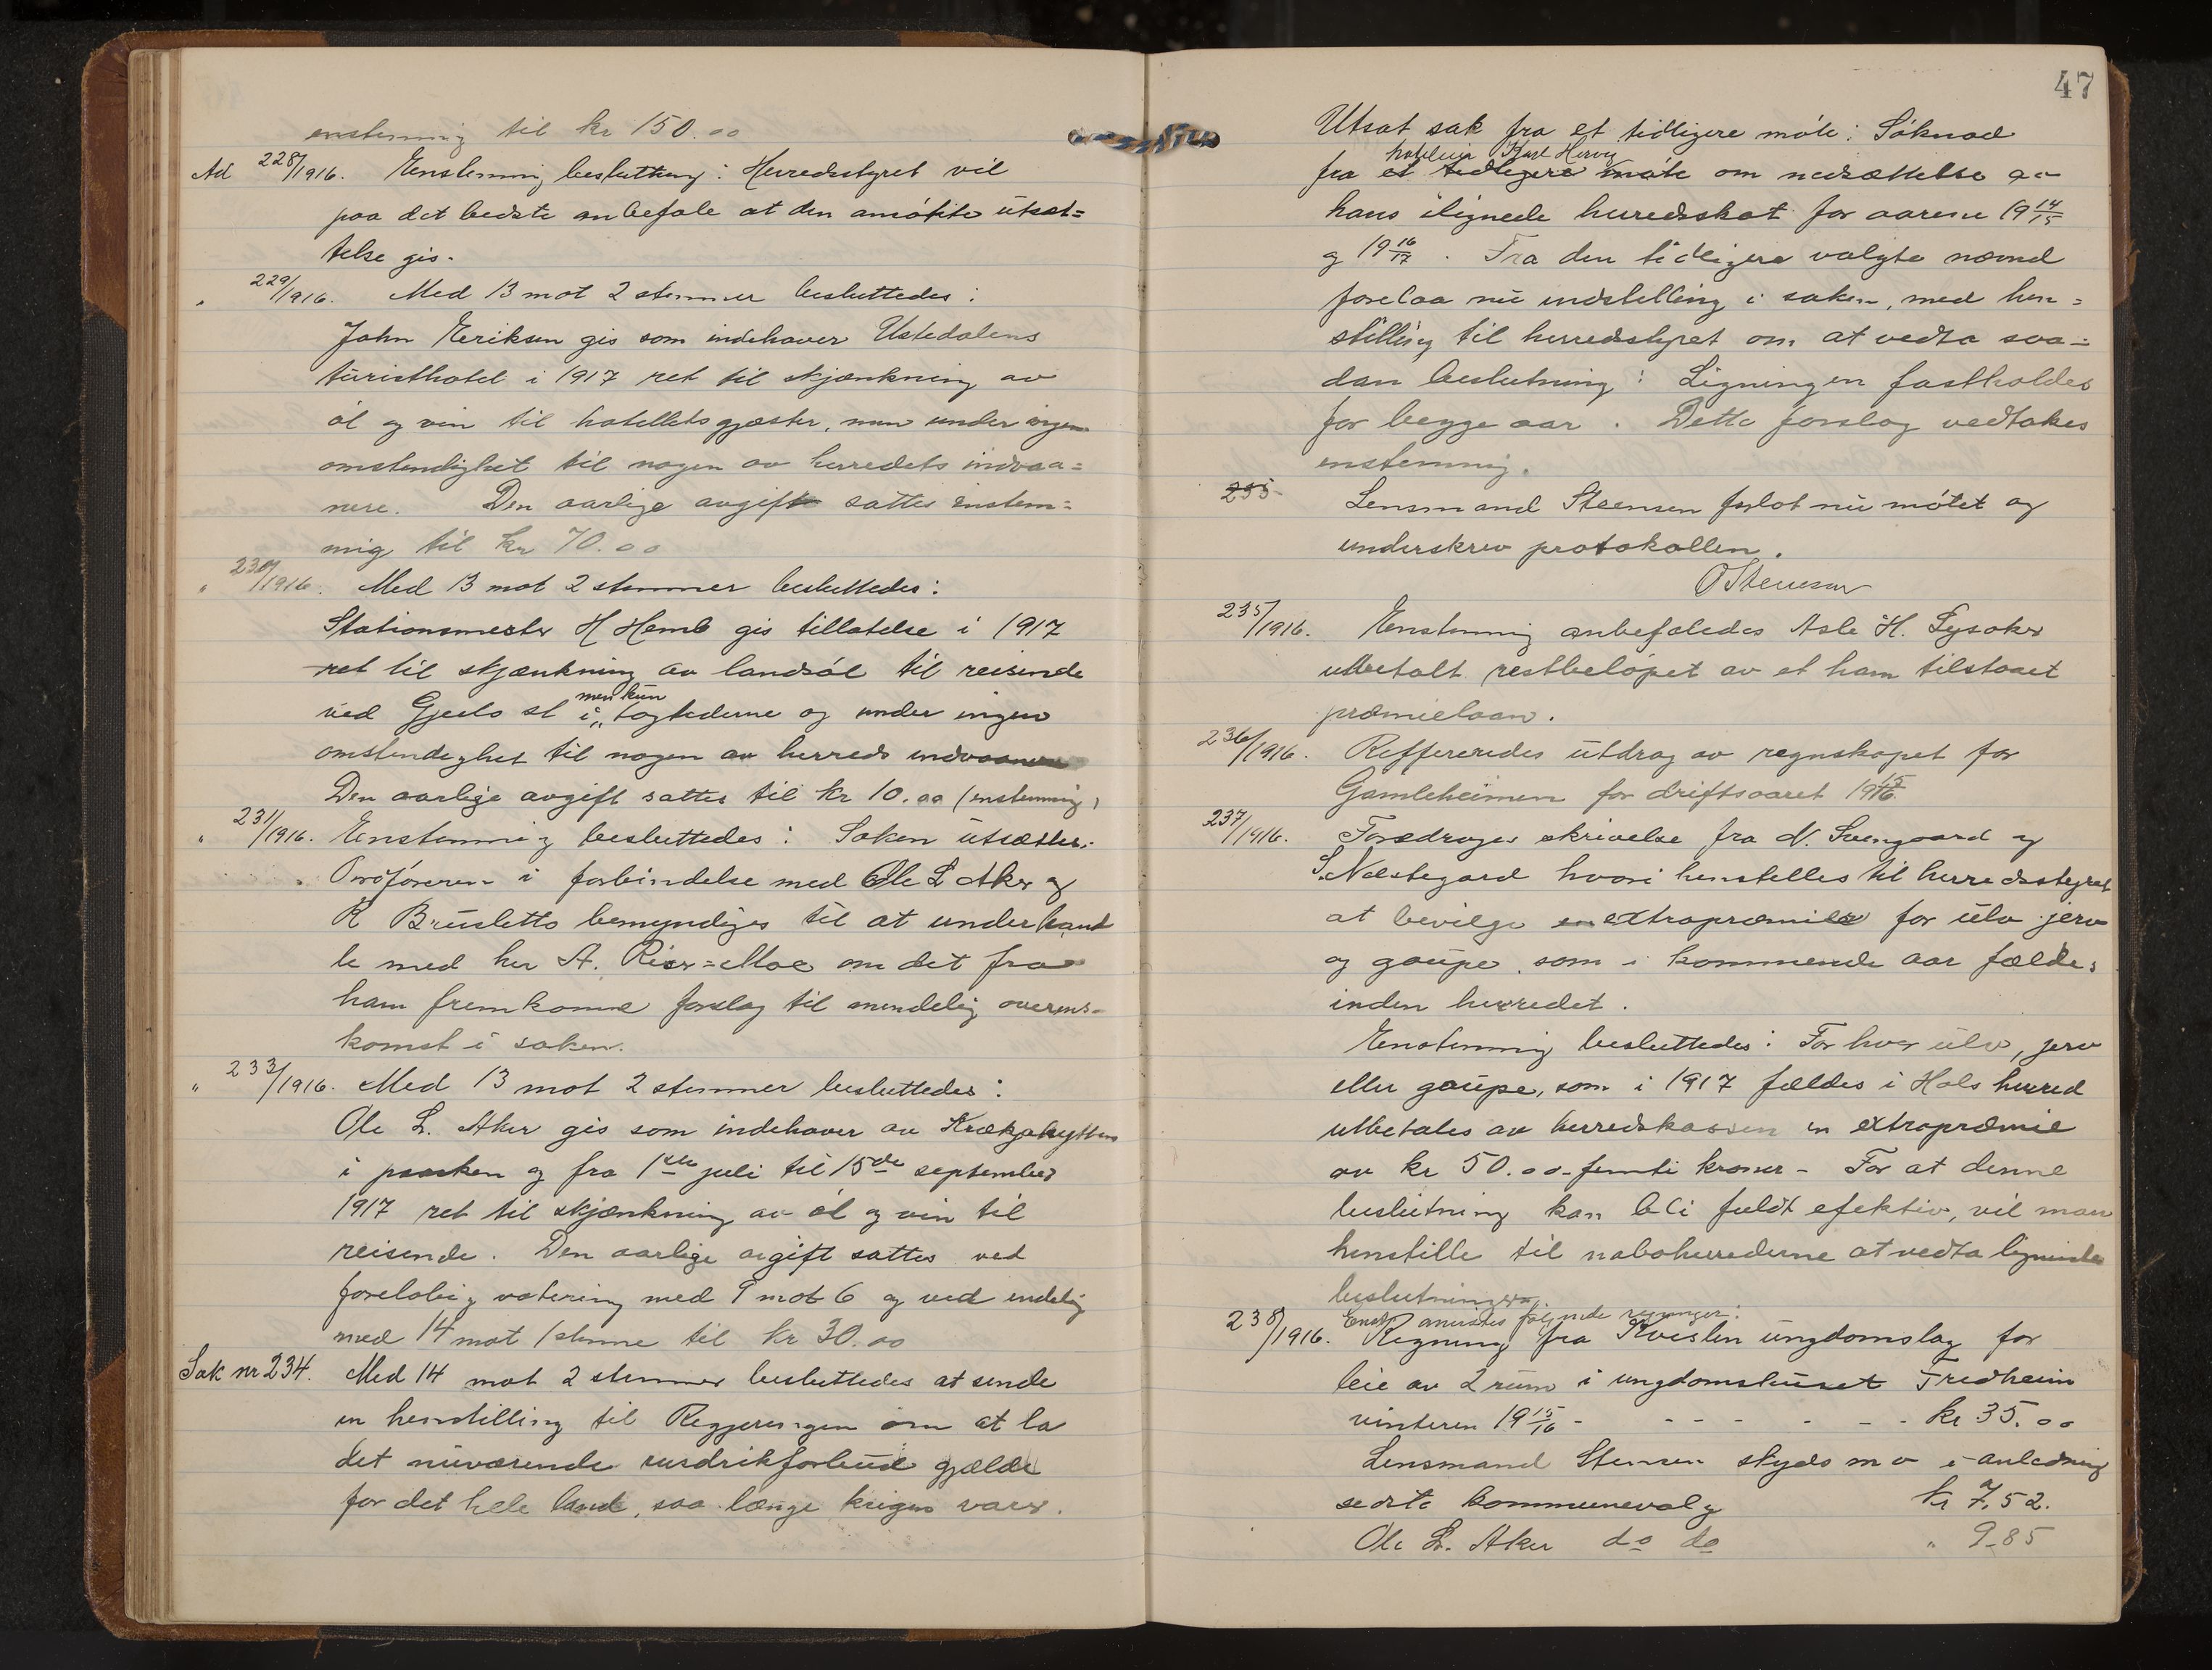 enstemmig til kr 150.00
Ad 228/1916. Eenstemmig besluttedes: Herredsstyret vil
paa det bedste anbefale at den ansøkte utsæt=
telse gis.
" 229/1916. Med 13 mot 2 stemmer besluttedes:
John Eeriksen gis som indehaver Ustedalens
turisthotel i 1917 ret til skjænkning av
øl og vin til hotellets gjæster, men under ingen
omstendighet til nogen av herredets indvaa=
nere. Den aarlige avgift sattes enstem=
mig til kr 70.00
" 230/1916. Med 13 mot 2 stemmer besluttedes:
Stationsmester H Hemb gis tillatelse i 1917
ret til skjænkning av landsøl til reisende
ved Gjeilo st i men kun togtiderne og under ingen
omstendighet til nogen av herreds indvaanere
Den aarlige avgift sattes til kr 10.00 (enstemmig)
" 231/1916. Eenstemmig besluttedes: Saken utsættes.
Ordføreren i forbindelse med Ole L Aker og
K Brusletto bemyndiges til at underhand
le med hr A. Rier=Moe om det fra
ham fremkomne forslag til mindelig overens-
komst i saken.
" 233/1916. Med 13 mot 2 stemmer besluttedes:
Ole L. Aker gis som indehaver av Krækjahytten
i paasken og fra 1ste juli til 15de september
1917 ret til skjænkning av øl og vin til
reisende. Den aarlige avgift sattes ved
foreløbig votering med 9 mot 6 og ved endelig
med 14 mot 1 stemme til kr 30.00
Sak nr 234. Med 14 mot 2 stemmer besluttedes at sende
en henstilling til Regjeringen om at la
det nuværende rusdrikforbud gjælde
for det hele land, saa længe krigen varer.
47
Utsat sak fra et tidligere møte: Søknad
hoteleier Karl Herwig
fra et tidligere møte om nedsættelse av
hans ilignede herredsskat for aarene 1914/15
og 1916/17. Fra den tidligere valgte nævnd
forelaa nu indstilling i saken, med hen=
stilling til herredsstyret om at vedta saa=
dan beslutning: Ligningen fastholdes
for begge aar. Dette forslag vedtakes
enstemmig.
235 Lensmand Steensen forlot nu møtet og
underskrev protokollen.
O Steensen
235/1916. Eenstemmig anbefaledes Asle H. Lysaker
utbetalt restbeløpet av et ham tilstaaet
præmielaan.
236/1916. Reffereredes utdrag av regnskapet for
Gamleheimen for driftsaaret 1915/16.
237/1916. Foredroges skrivelse fra N. Svengaard og
S. Nestegard hvori henstelles til herredsstyret
at bevilge en extrapræmie for ulv jerv
og gaupe som i kommende aar fældes
inden herredet.
Eenstemmig besluttedes: For hver ulv, jerv
eller gaupe, som i 1917 fældes i Hols herred
utbetales av herredskassen en extrapræmie
av kr 50.00 - femti kroner - For at denne
beslutning kan bli fuldt efektiv, vil man
henstille til naboherrederne at vedta lignende
beslutninger.
Enst. anvistes følgende regninger:
238/1916. Regning fra Kvislen ungdomslag for
leie av 2 rum i ungdomshuset Fredheim
vinteren 1915/16 - - - - - - - kr 35.00
Lensmand Stensen skyds m v i anledning
sedste kommunevalg kr 7.52.
Ole L. Aker do do " 9.85